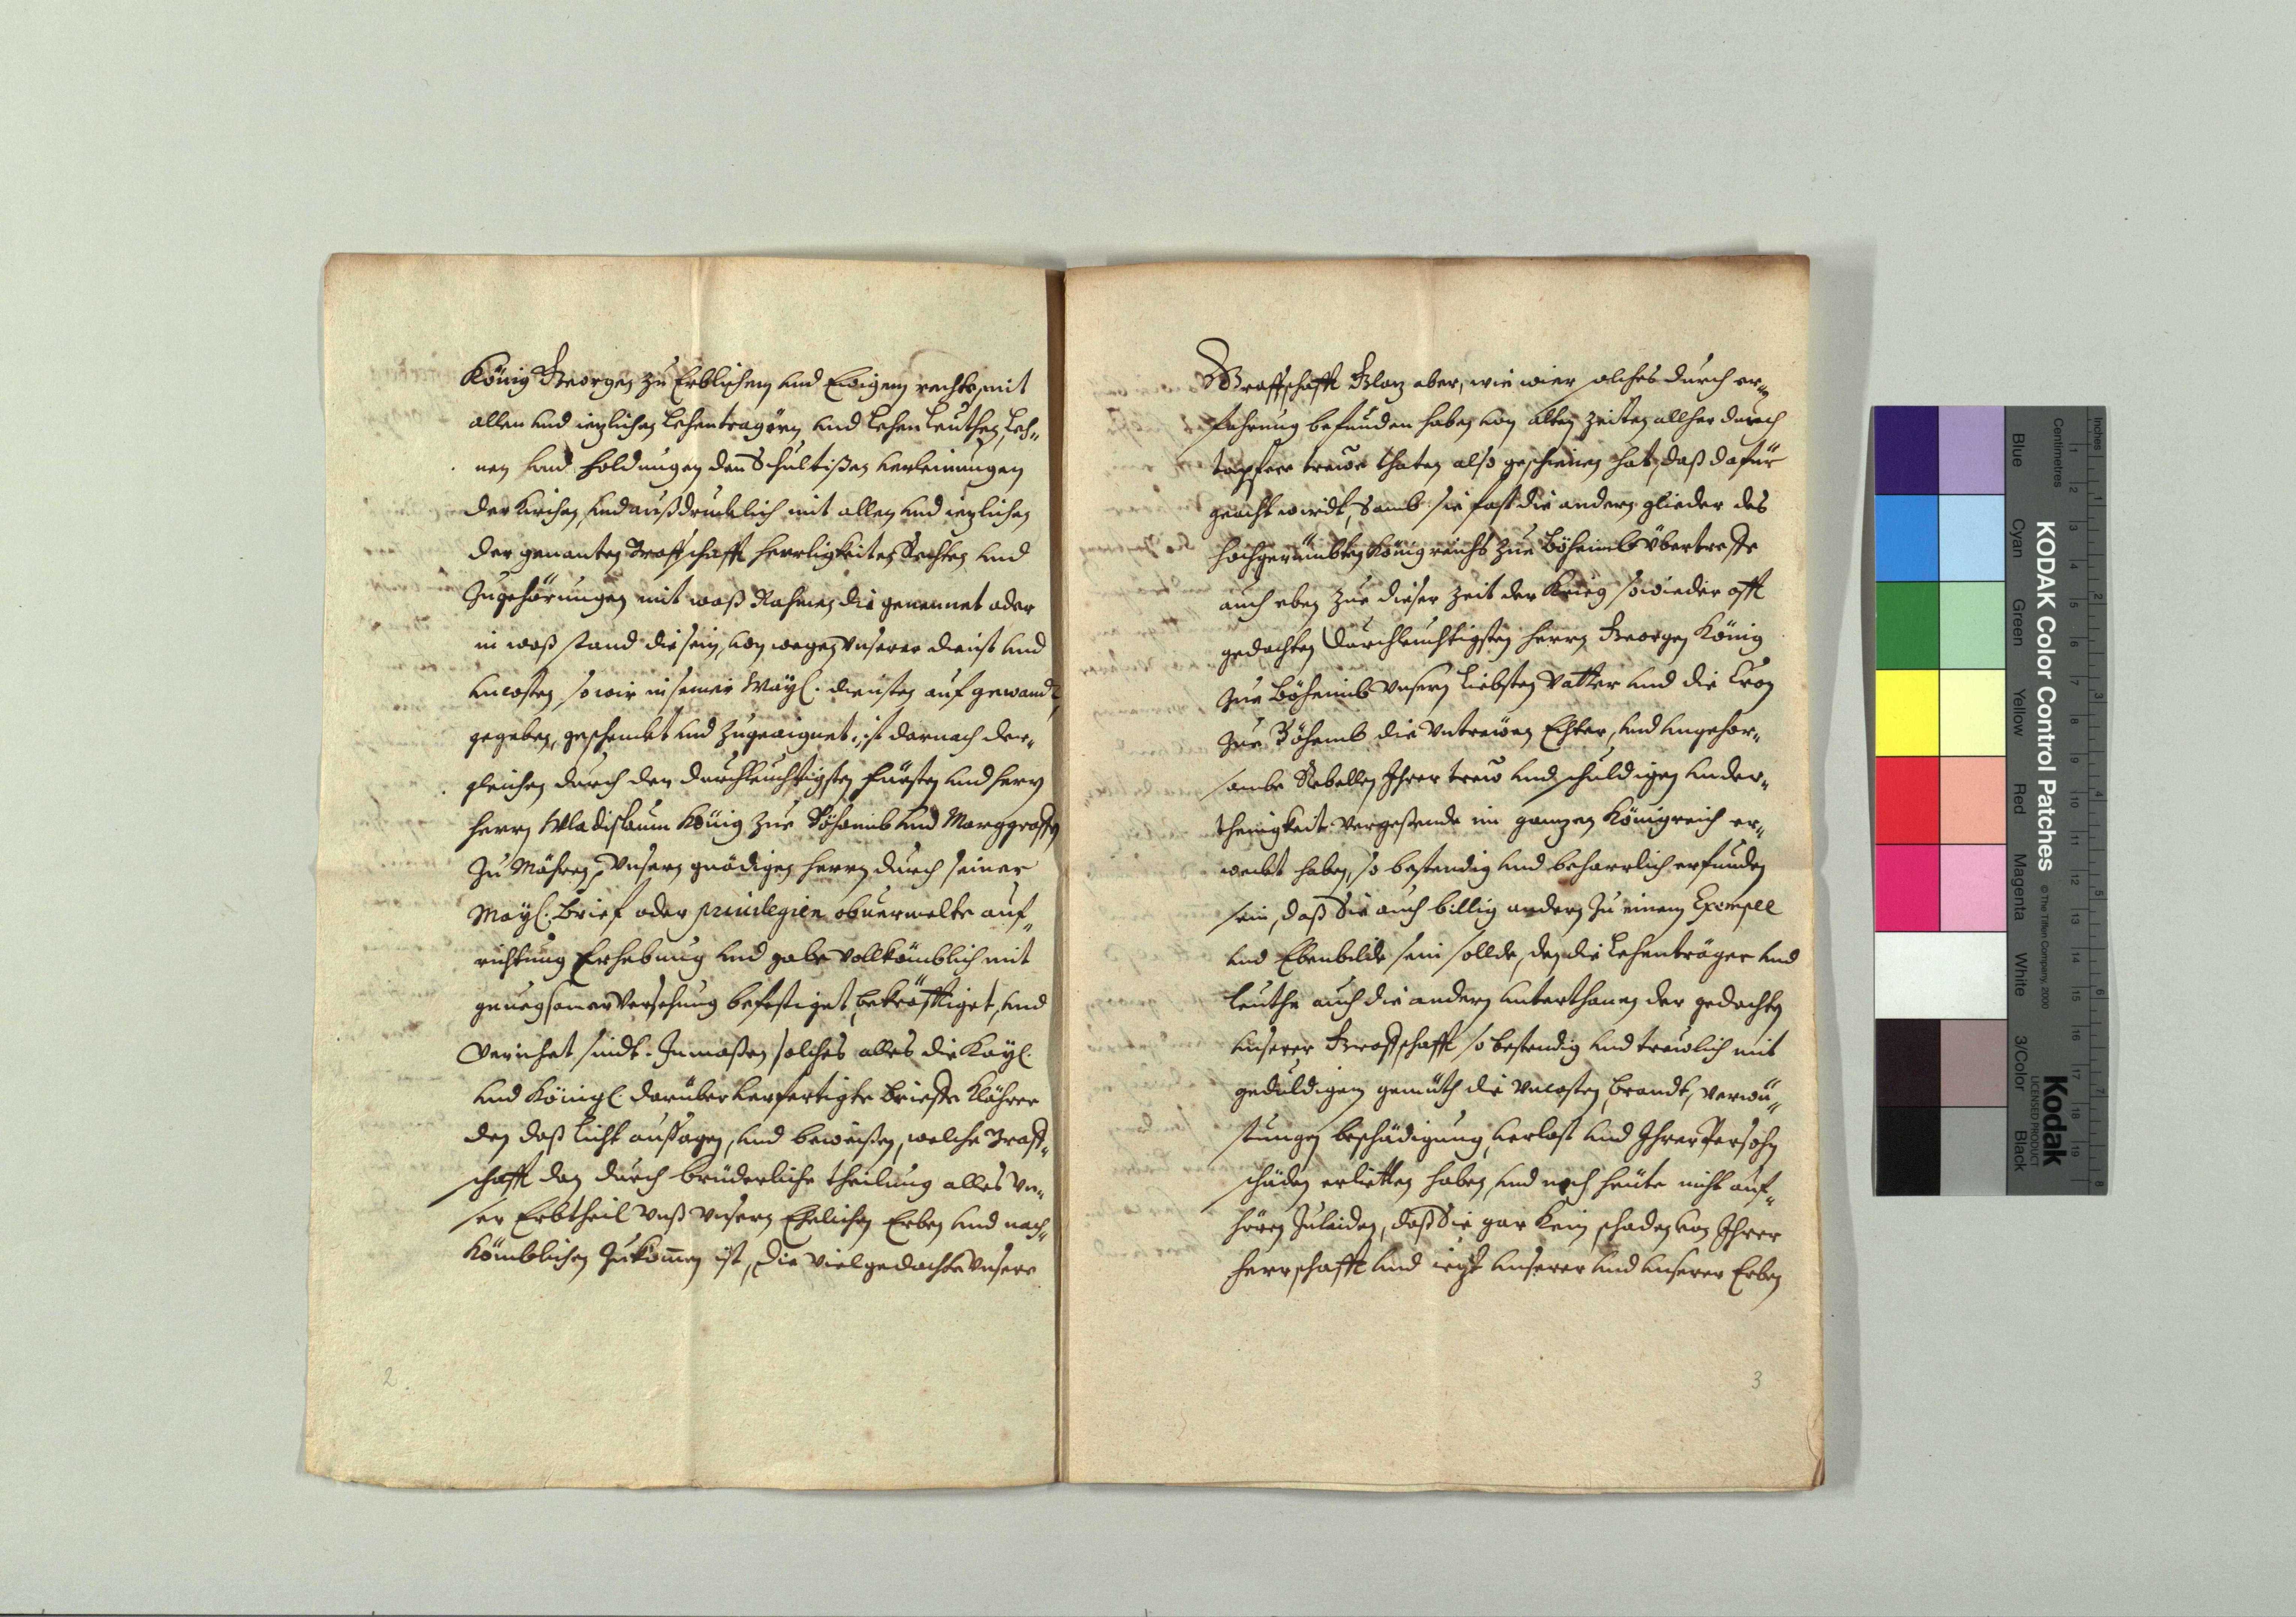 König Georgen zu Erblichem und Ewigem rechte, mit
allen und iezlichen Lehenträgern und Lehen Leuthen, Leh-
nen und holdungen den Schultißen verleinungen
der kirchen, und außdruklich mit allen und iezlichen
der genanten Graffschafft herrligkeiten Rechten und
Zugehörungen mit waß Nahmen die genennet oder
in waß stand die sein, von wegen Unserer dienst und
uncosten, so wir in seiner Mayl. diensten aufgewandt,
gegeben, geschenkt und zugeaignet, ist darnach der-
gleichen durch den durchleuchtigsten Fürsten und hern
herrn Wladislaum König zue Böheimb und Marggraffen
zu Mähren, Unsern gnädigen herrn durch seiner
Mayl. brief oder privilegien obvermelte auf-
richtung Erhebung und gabe vollkömblich mit
gnuegsamer Versehung befestiget, bekräfftiget, und
Vereichet sindt. Inmaßen solches alles die Kayl.
und Königl. darüber verfertigte brieffe klährer
den daß licht außagen, und beweißen, welche Graff-
schafft den durch brüderliche theilung alles Un-
ser Erbtheil Unß Unsern Ehelichen Erben und nach-
kömblichen zukommen ist, die vielgedachte Unsere
2
Graffschafft Glaz aber, wie wier solches durch er-
fahrung befunden haben von alten zeiten allher durch
tapfere trewe thaten also geschienen hat, daß dafür
geacht wirdt, samb sie fast die andern glieder des
hochgerümbten Königreichs zue Böheimb übertreffe
auch eben zue dieser zeit der Krieg so wieder offt
gedachten Durchleuchtigsten herrn Georgen König
zue Böheimb Unsern Liebsten Vatter und die Cron
zue Böhemb die Untrewen Ehter, und ungehor-
sambe Rebellen Ihrer trew und schuldigen under-
thenigkeit vergeßende im ganzen Königreich er-
wekt haben, so bestendig und beharrlich erfunden
sein, daß Sie auch billig andern zu einem Exempel
und Ebenbilde sein sollde, den die Lehenträger und
Leuthe auch die andern unterthanen der gedachten
unserer Graffschafft so bestendig und trewlich mit
geduldigem gemüth die Uncosten, brandt, verwü-
stungen beschädigung, verlost und Ihrer Persohn
schäden erlietten haben, und noch heüte nicht auf-
hören zuleiden, daß Sie gar kein schaden von Ihrer
herrschafft und iezt unserer und unserer Erben
3
KODAK Color Control Patches
© The Tiffen Company, 2000
Kodak
LICENSED PRODUCT
Blue
Cyan
Green
Yellow
Red
Magenta
White
3/Color
Black
Inches
Centimetres